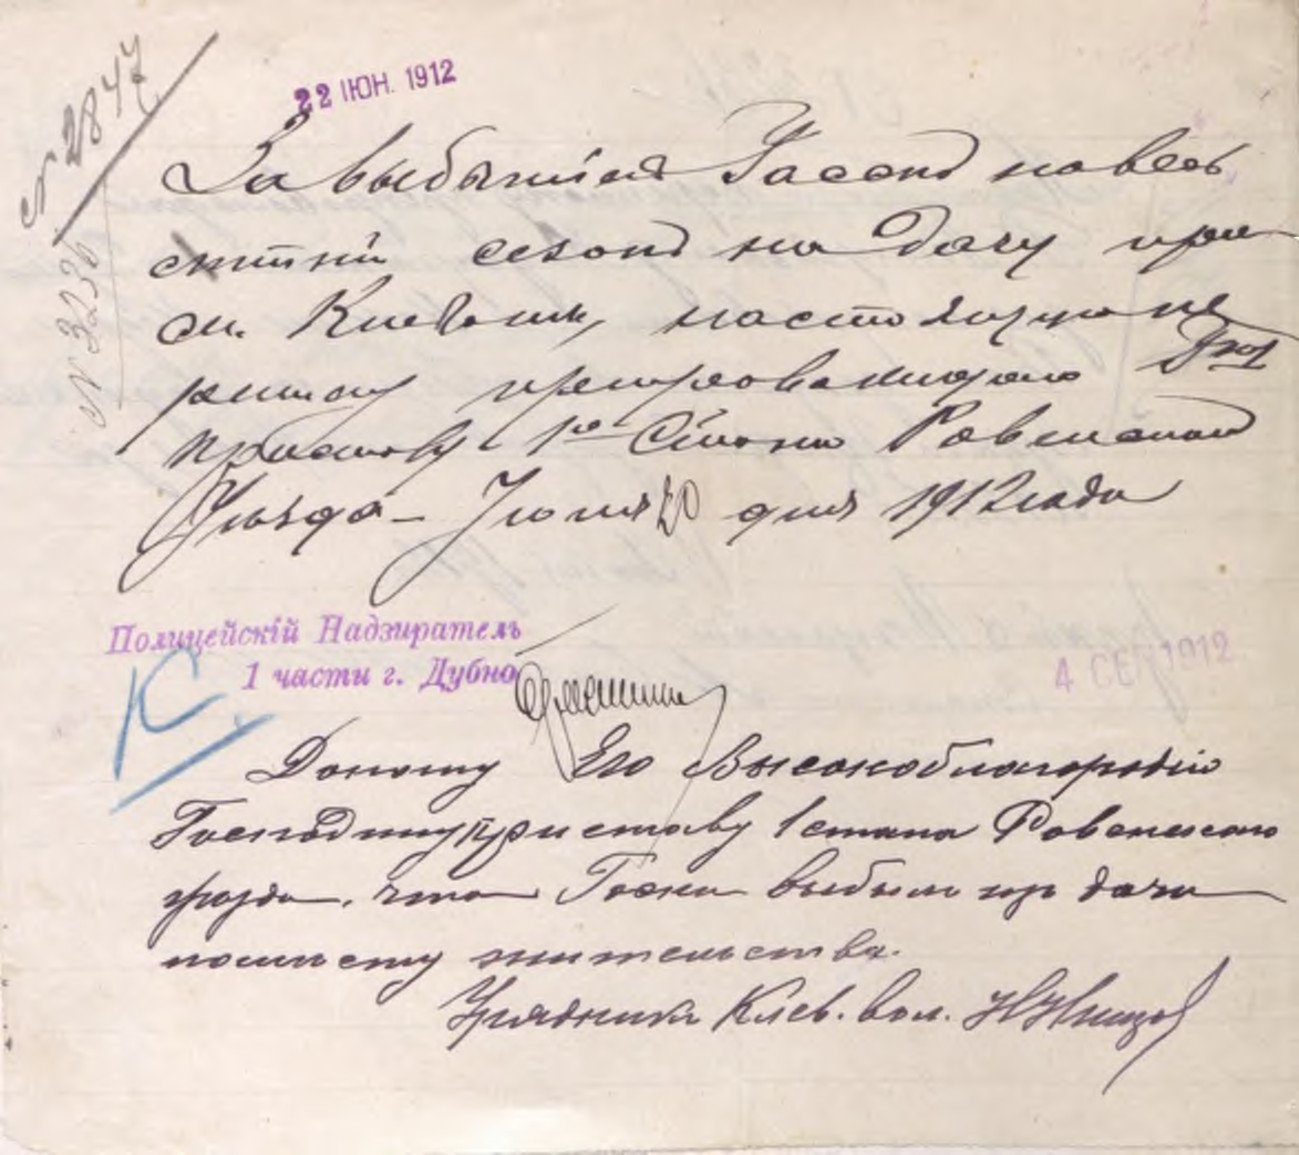 № 2847
№ 3236
22 ІЮН. 1912
За выбытіемъ на весь
лѣтній сезонъ на дачу при
м. Клевань, настоящую пе
реписку препровождаю Его
Приставу 1го Стана Ровенскаго
Уѣзда – Іюня 20 дня 1912 года
Полицейскій Надзиратель
1 части г. Дубно
4 СЕН 1912
К
Доношу Его Высокоблагородію
Господину Приставу 1 стана Ровенскаго
уѣзда, что выбыли изъ дачи
по мѣсту жительства.
Урядникъ Клев. вол.